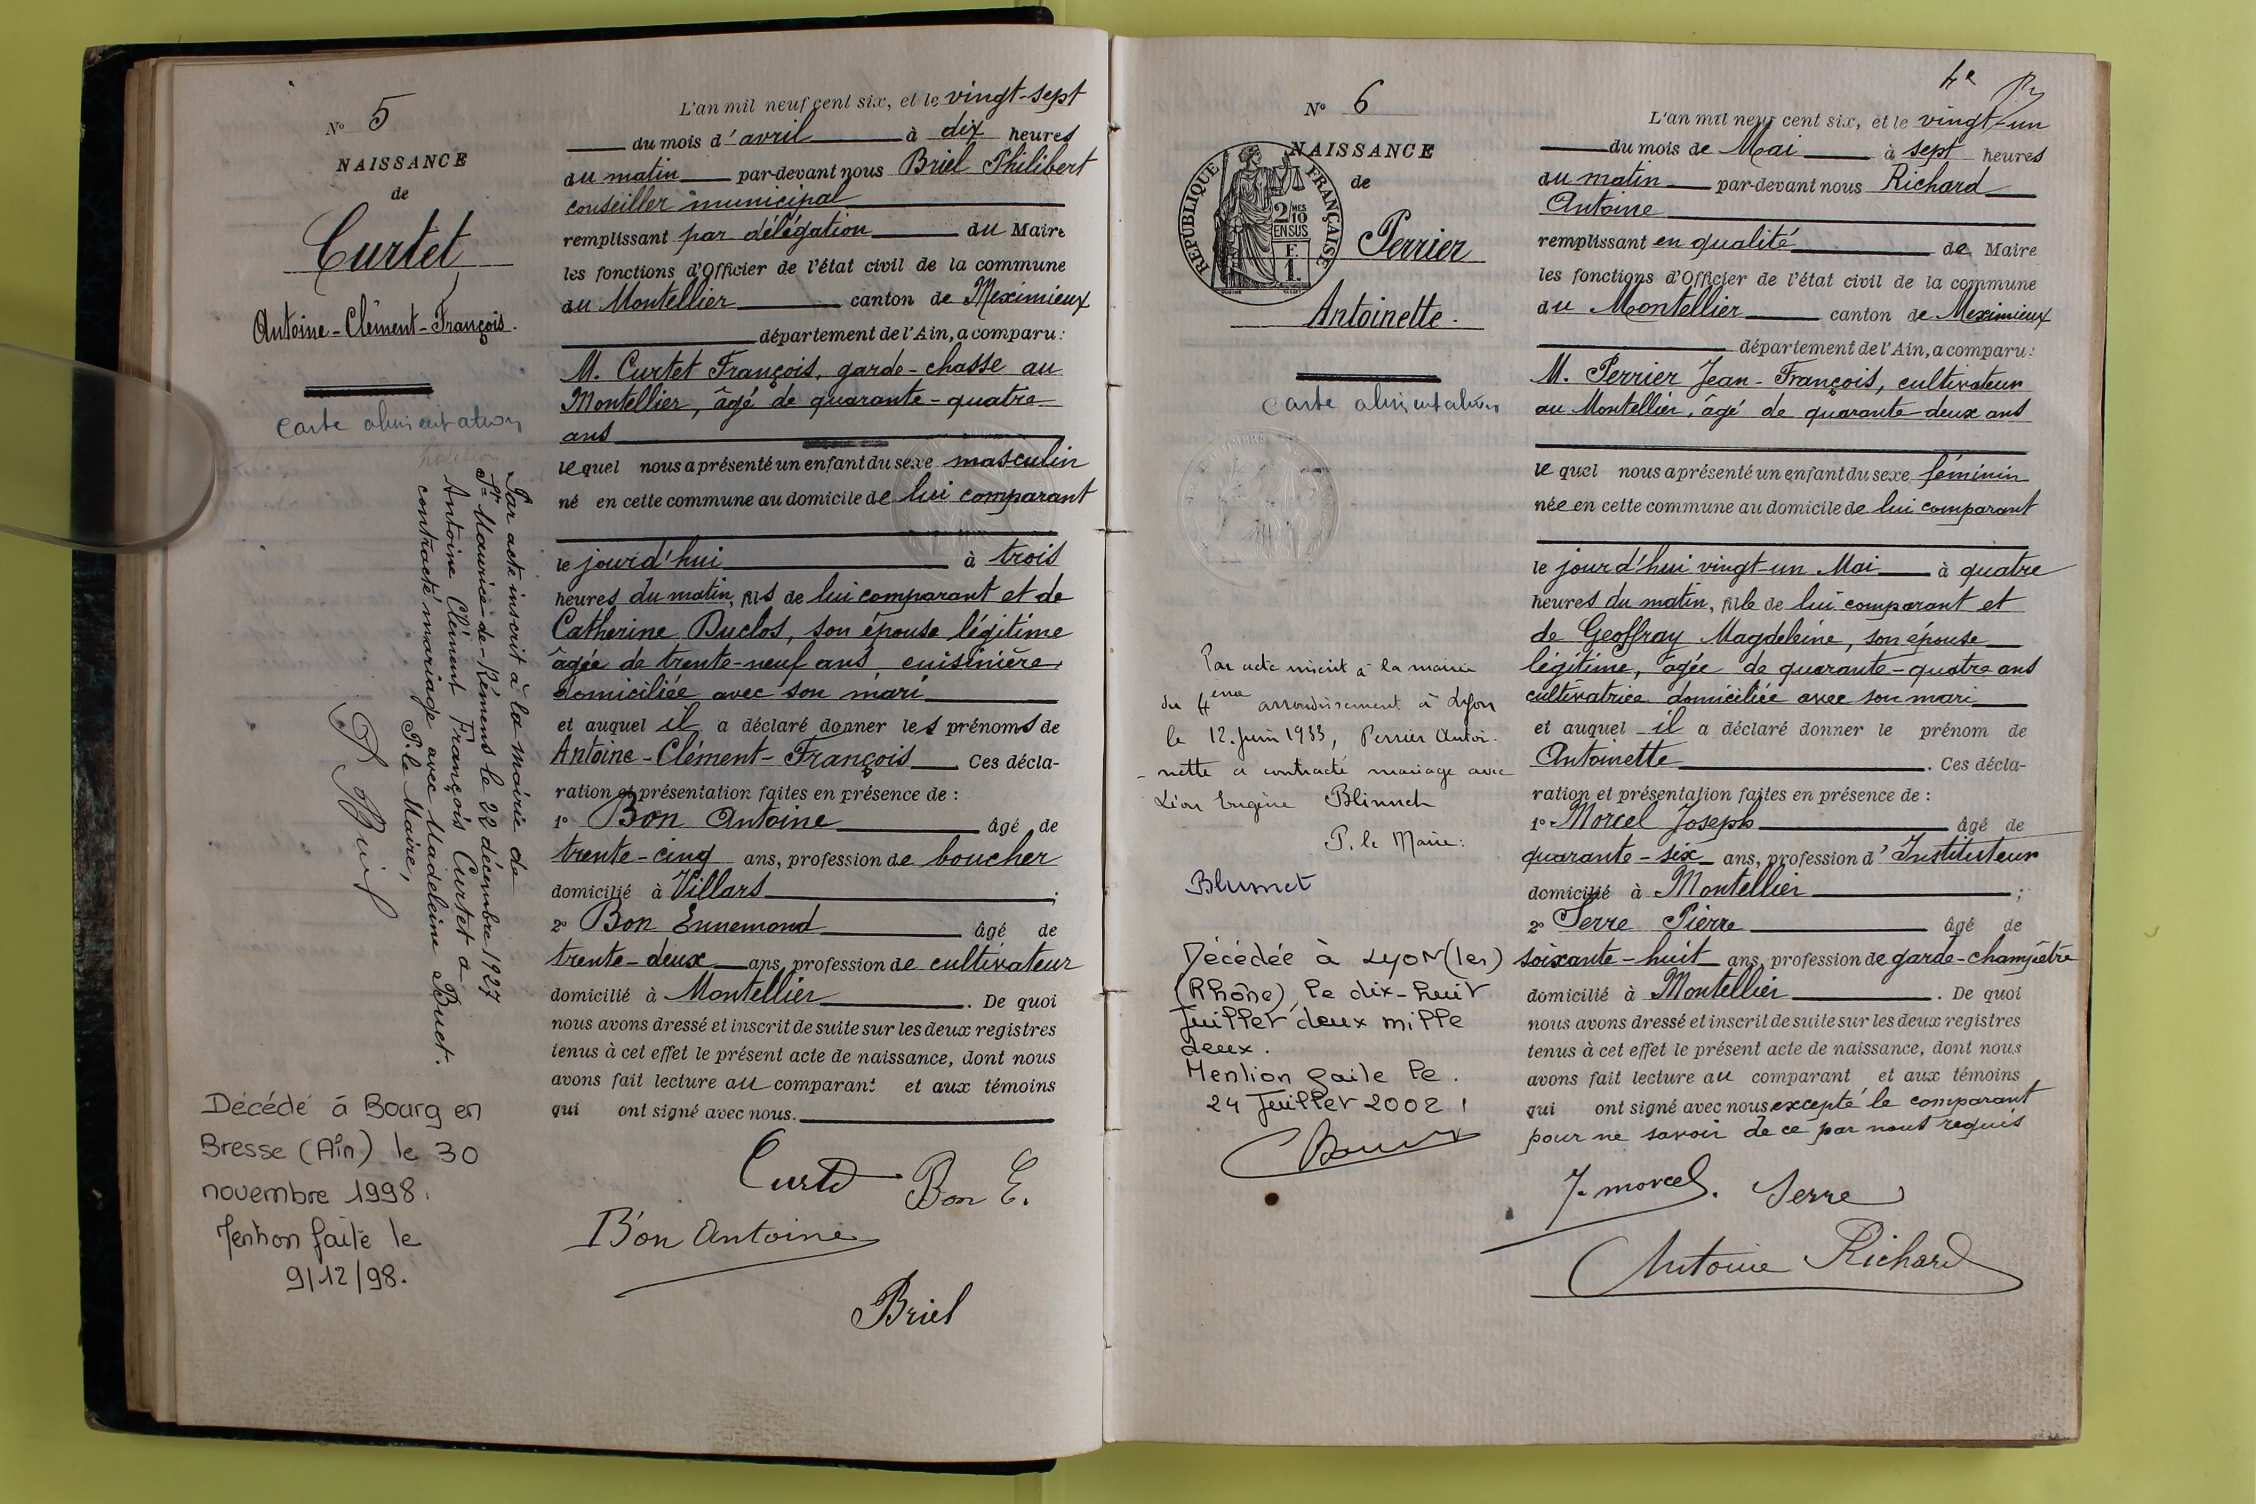 N° 5
NAISSANCE
de
Curtet
Antoine-Clément-François.
Carte alimentation
Par acte inscrit à la mairie de
St Maurice-de-Rémens le 22 décembre 1927
Antoine Clément François Curtet a
contracté mariage avec Madeleine Buet.
P. le Maire,
Décédé à Bourg en
Bresse (Ain) le 30
novembre 1998.
Mention faite le
9/12/98.
L'an mil neuf cent six, et le vingt-sept
du mois d'avril à dix heures
du matin par-devant nous Briel Philibert
conseiller municipal
remplissant par délégation du Maire
les fonctions d'Officier de l'état civil de la commune
du Montellier canton de Meximieux
département de l'Ain, a comparu:
M. Curtet François, garde-chasse au
Montellier, âgé de quarante-quatre
ans
lequel nous a présenté un enfant du sexe masculin
né en cette commune au domicile de lui comparant
le jourd'hui à trois
heures du matin, fils de lui comparant et de
Catherine Duclos, son épouse légitime
âgée de trente-neuf ans, cuisinière,
domiciliée avec son mari
et auquel il a déclaré donner les prénoms de
Antoine-Clément-François Ces décla-
ration et présentation faites en présence de :
1° Bon Antoine âgé de
trente-cinq ans, profession de boucher
domicilié à Villars ;
2° Bon Ennemond âgé de
trente-deux ans, profession de cultivateur
domicilié à Montellier. De quoi
nous avons dressé et inscrit de suite sur les deux registres
tenus à cet effet le présent acte de naissance, dont nous
avons fait lecture au comparant et aux témoins
qui ont signé avec nous.
Curtet Bon E.
Bon Antoine
Briel
4e
N° 6
NAISSANCE
de
RÉPUBLIQUE FRANÇAISE
2/MES
10
EN SUS
F.
1.
Perrier
Antoinette.
Carte alimentation
Par acte inscrit à la mairie
du 4eme arrondissement à Lyon
le 12 juin 1933, Perrier Antoi-
nette a contracté mariage avec
Léon Eugène
P. le Maire:
Décédée à LYON (1er)
(Rhône), le dix-huit
Juillet deux mille
deux.
Mention faite le
24 Juillet 2002
L'an mil neuf cent six, et le vingt-un
du mois de Mai à sept heures
du matin par-devant nous Richard
Antoine
remplissant en qualité de Maire
les fonctions d'Officier de l'état civil de la commune
du Montellier canton de Meximieux
département de l'Ain, a comparu:
M. Perrier Jean-François, cultivateur
au Montellier, âgé de quarante-deux ans
lequel nous a présenté un enfant du sexe féminin
née en cette commune au domicile de lui comparant
le jourd'hui vingt-un Mai à quatre
heures du matin, fille de lui comparant et
de Geoffray Magdeleine, son épouse
légitime, âgée de quarante-quatre ans
cultivatrice domiciliée avec son mari
et auquel il a déclaré donner le prénom de
Antoinette. Ces décla-
ration et présentation faites en présence de :
1° Morcel Joseph âgé de
quarante-six ans, profession d'Instituteur
domicilié à Montellier ;
2° Serre Pierre âgé de
soixante-huit ans, profession de garde-champêtre
domicilié à Montellier. De quoi
nous avons dressé et inscrit de suite sur les deux registres
tenus à cet effet le présent acte de naissance, dont nous
avons fait lecture au comparant et aux témoins
qui ont signé avec nous excepté le comparant
pour ne savoir de ce par nous requis
J. Morcel. Serre
Antoine Richard